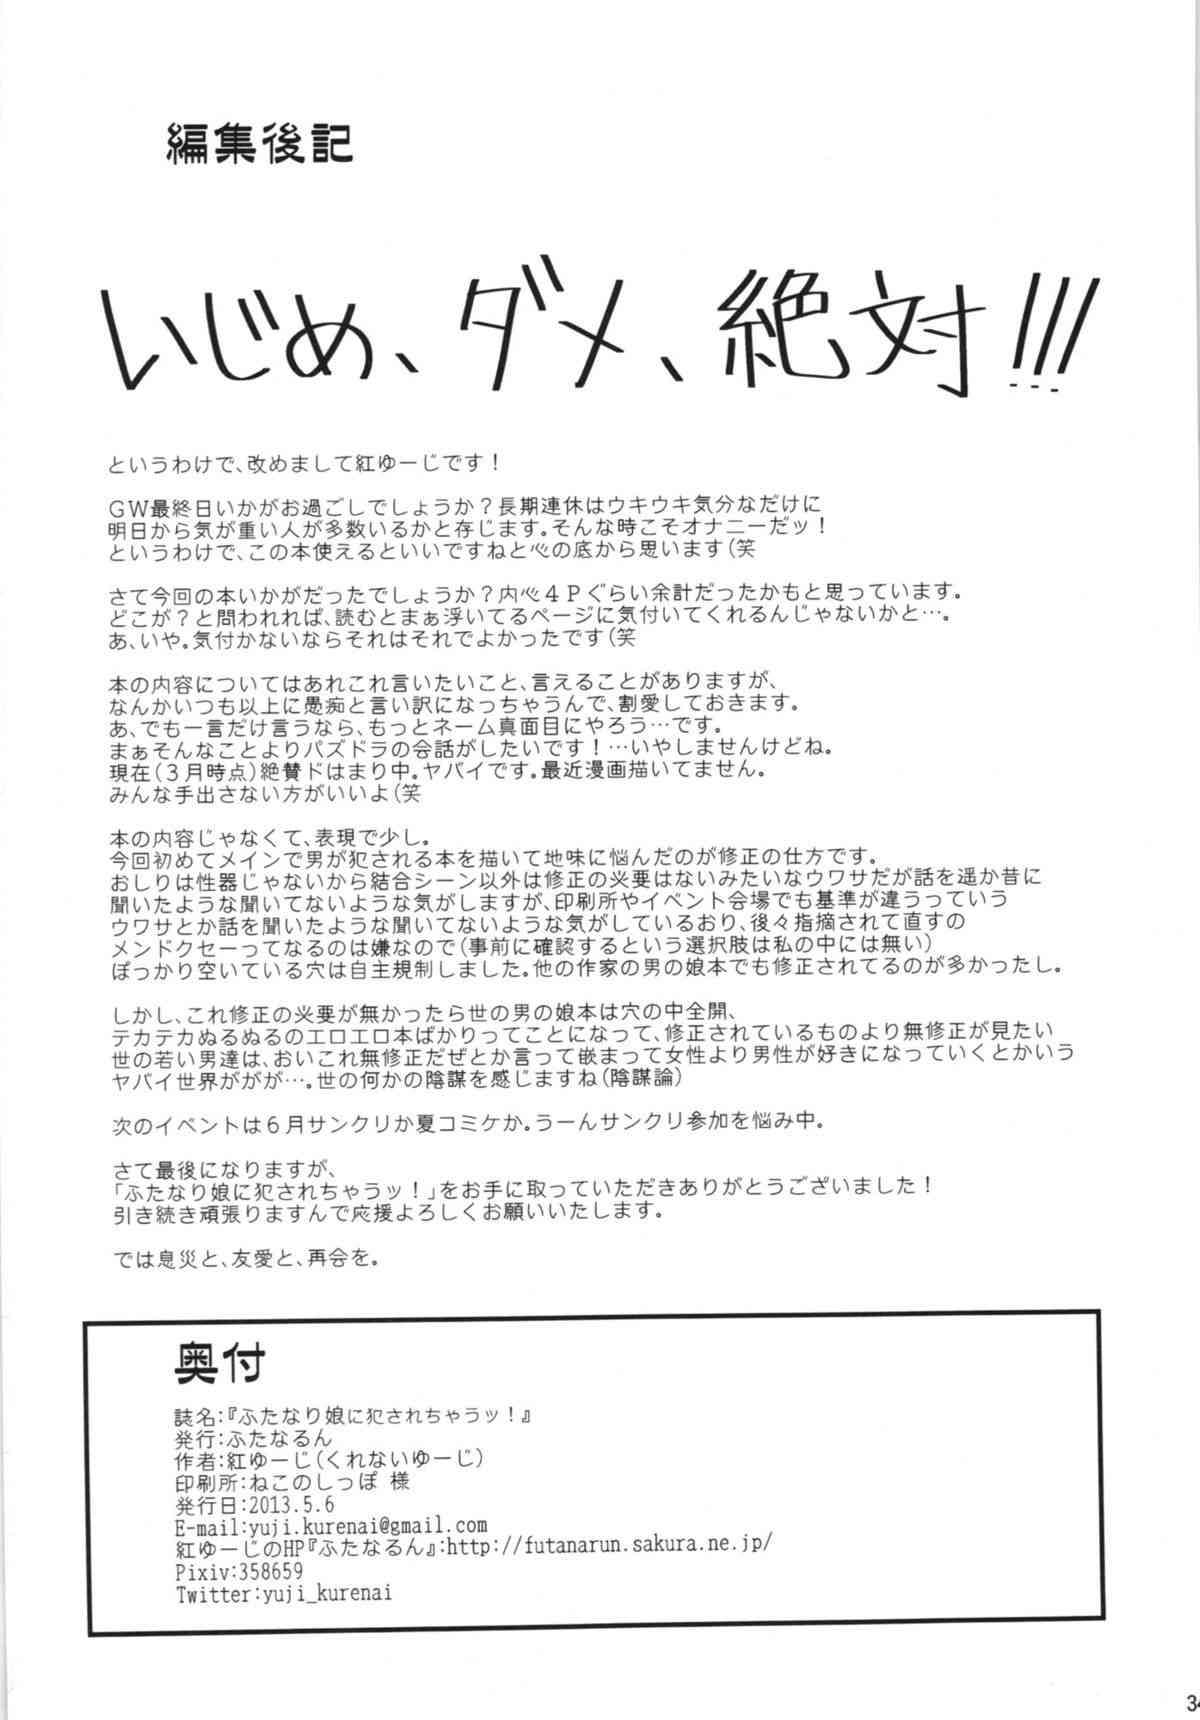 編集後記
いじめ、ダメ、絶対!!!
というわけで、改めまして紅ゆーじです！
GW最終日いかがお過ごしでしょうか？長期連休はウキウキ気分なだけに
明日から気が重い人が多数いるかと存じます。そんな時こそオナニーだッ！
というわけで、この本使えるといいですねと心の底から思います(笑
さて今回の本いかがだったでしょうか？内心４Ｐぐらい余計だったかもと思っています。
どこが？と問われれば、読むとまぁ浮いてるページに気付いてくれるんじゃないかと…。
あ、いや。気付かないならそれはそれでよかったです(笑
本の内容についてはあれこれ言いたいこと、言えることがありますが、
なんかいつも以上に愚痴と言い訳になっちゃうんで、割愛しておきます。
あ、でも一言だけ言うなら、もっとネーム真面目にやろう…です。
まぁそんなことよりパズドラの会話がしたいです！…いやしませんけどね。
現在(３月時点)絶賛ドはまり中。ヤバイです。最近漫画描いてません。
みんな手出さない方がいいよ(笑
本の内容じゃなくて、表現で少し。
今回初めてメインで男が犯される本を描いて地味に悩んだのが修正の仕方です。
おしりは性器じゃないから結合シーン以外は修正の必要はないみたいなウワサだが話を遥か昔に
聞いたような聞いてないような気がしますが、印刷所やイベント会場でも基準が違うっていう
ウワサとか話を聞いたような聞いてないような気がしているおり、後々指摘されて直すの
メンドクセーってなるのは嫌なので(事前に確認するという選択肢は私の中には無い)
ぽっかり空いている穴は自主規制しました。他の作家の男の娘本でも修正されてるのが多かったし。
しかし、これ修正の必要が無かったら世の男の娘本は穴の中全開、
テカテカぬるぬるのエロエロ本ばかりってことになって、修正されているものより無修正が見たい
世の若い男達は、おいこれ無修正だぜとか言って嵌まって女性より男性が好きになっていくとかいう
ヤバイ世界ががが…。世の何かの陰謀を感じますね(陰謀論)
次のイベントは６月サンクリか夏コミケか。うーんサンクリ参加を悩み中。
さて最後になりますが、
「ふたなり娘に犯されちゃうッ！」をお手に取っていただきありがとうございました！
引き続き頑張りますんで応援よろしくお願いいたします。
では息災と、友愛と、再会を。
奥付
誌名:『ふたなり娘に犯されちゃうッ！』
発行:ふたなるん
作者:紅ゆーじ(くれないゆーじ)
印刷所:ねこのしっぽ 様
発行日:2013.5.6
E-mail:yuji.kurenai@gmail.com
紅ゆーじのHP『ふたなるん』:http://futanarun.sakura.ne.jp/
Pixiv:358659
Twitter:yuji_kurenai
34